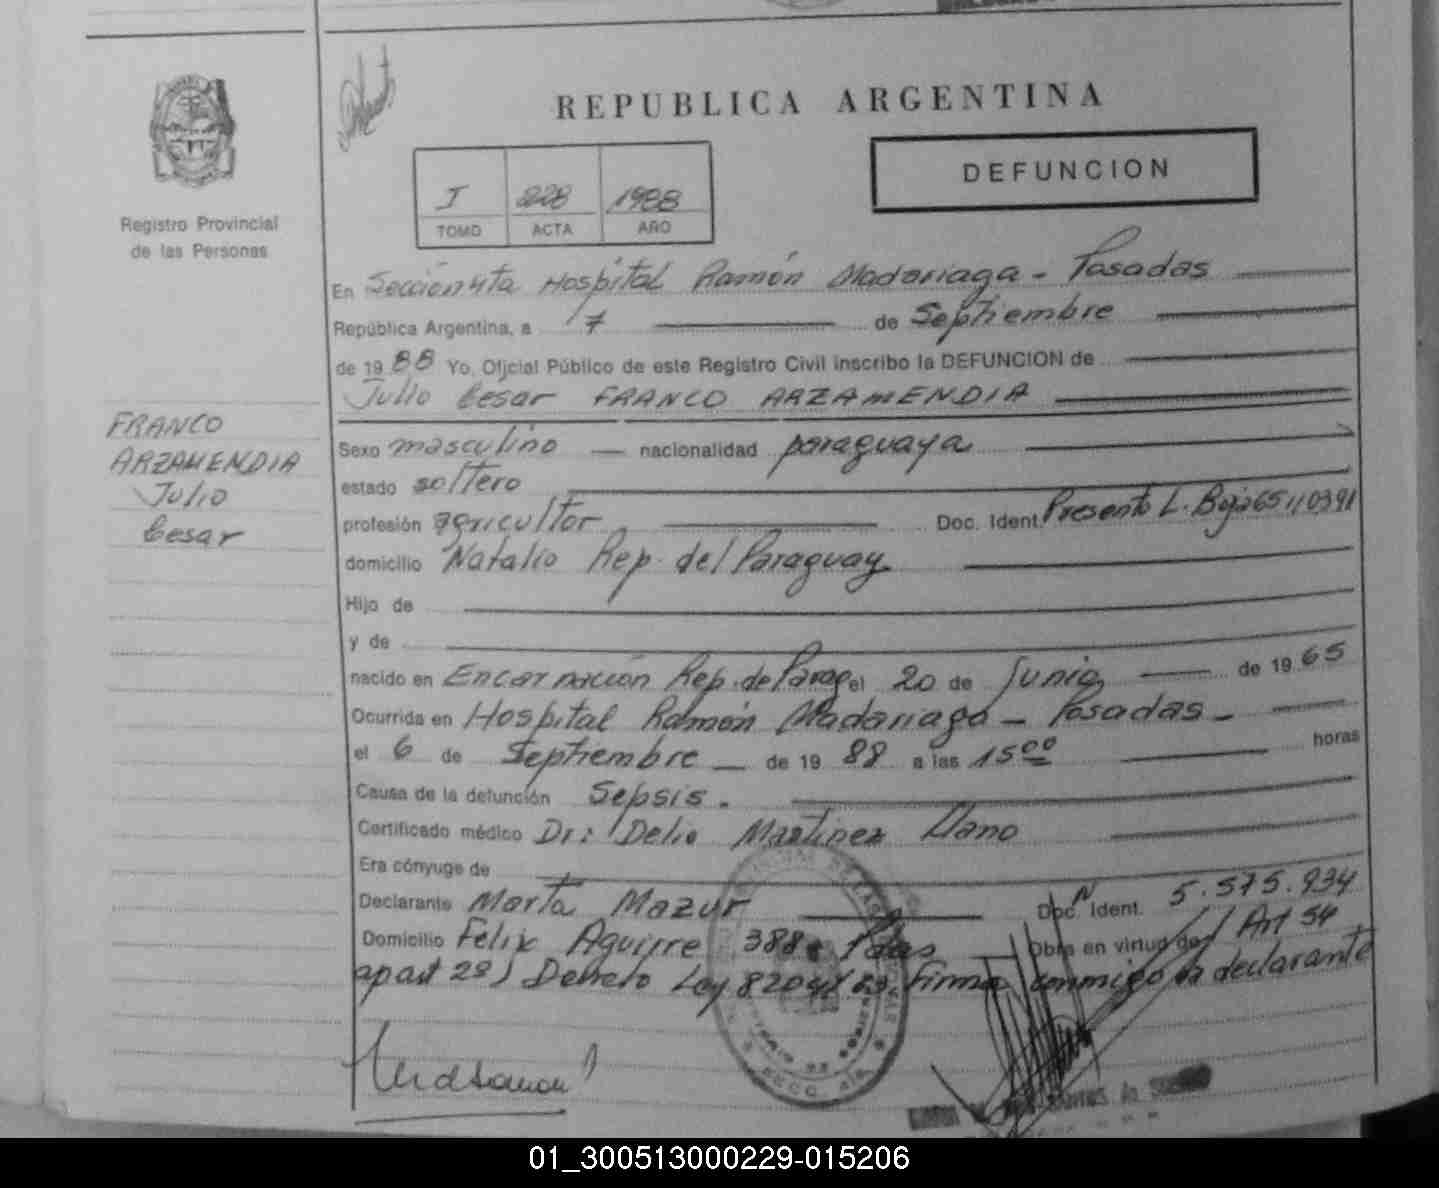 REPUBLICA ARGENTINA
DEFUNCION
I 228 1988
TOMO ACTA AÑO
Registro Provincial
de las Personas
En Sección 4ta Hospital Ramón Madariaga - Posadas
República Argentina, a 7 de Septiembre
de 1988 Yo, Oficial Público de este Registro Civil inscribo la DEFUNCION de
Julio Cesar FRANCO ARZAMENDIA
FRANCO
ARZAMENDIA
Julio
Cesar
Sexo masculino nacionalidad paraguaya
estado soltero
profesión agricultor Doc. Ident. Presento L. Baja 65110391
domicilio Natalio Rep. del Paraguay
Hijo de
y de
nacido en Encarnación Rep. de Parag el 20 de Junio de 1965
Ocurrida en Hospital Ramón Madariaga - Posadas -
el 6 de Septiembre de 1988 a las 15 00 horas
Causa de la defunción Sepsis.
Certificado médico Dr: Delio Martinez Llano
Era cónyuge de
Declarante Marta Mazur Doc. Ident. 5.575.934
Domicilio Felix Aguirre 388 Pdas Obra en virtud de Art 54
apart 2º) Decreto Ley 8204/63. Firma conmigo la declarante
01_300513000229-015206